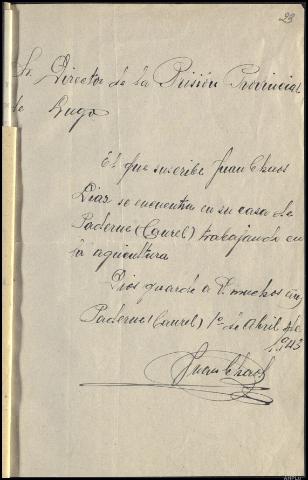 23
Sr. Director de la Prisión Provincial
de Lugo
El que suscribe Juan Chaos
Diaz se encuentra en su casa de
Paderne (Caurel) trabajando en
la agricultura
Dios guarde a V. muchos
Paderne (Caurel) 1º de Abril de
1943
Juan Chaos